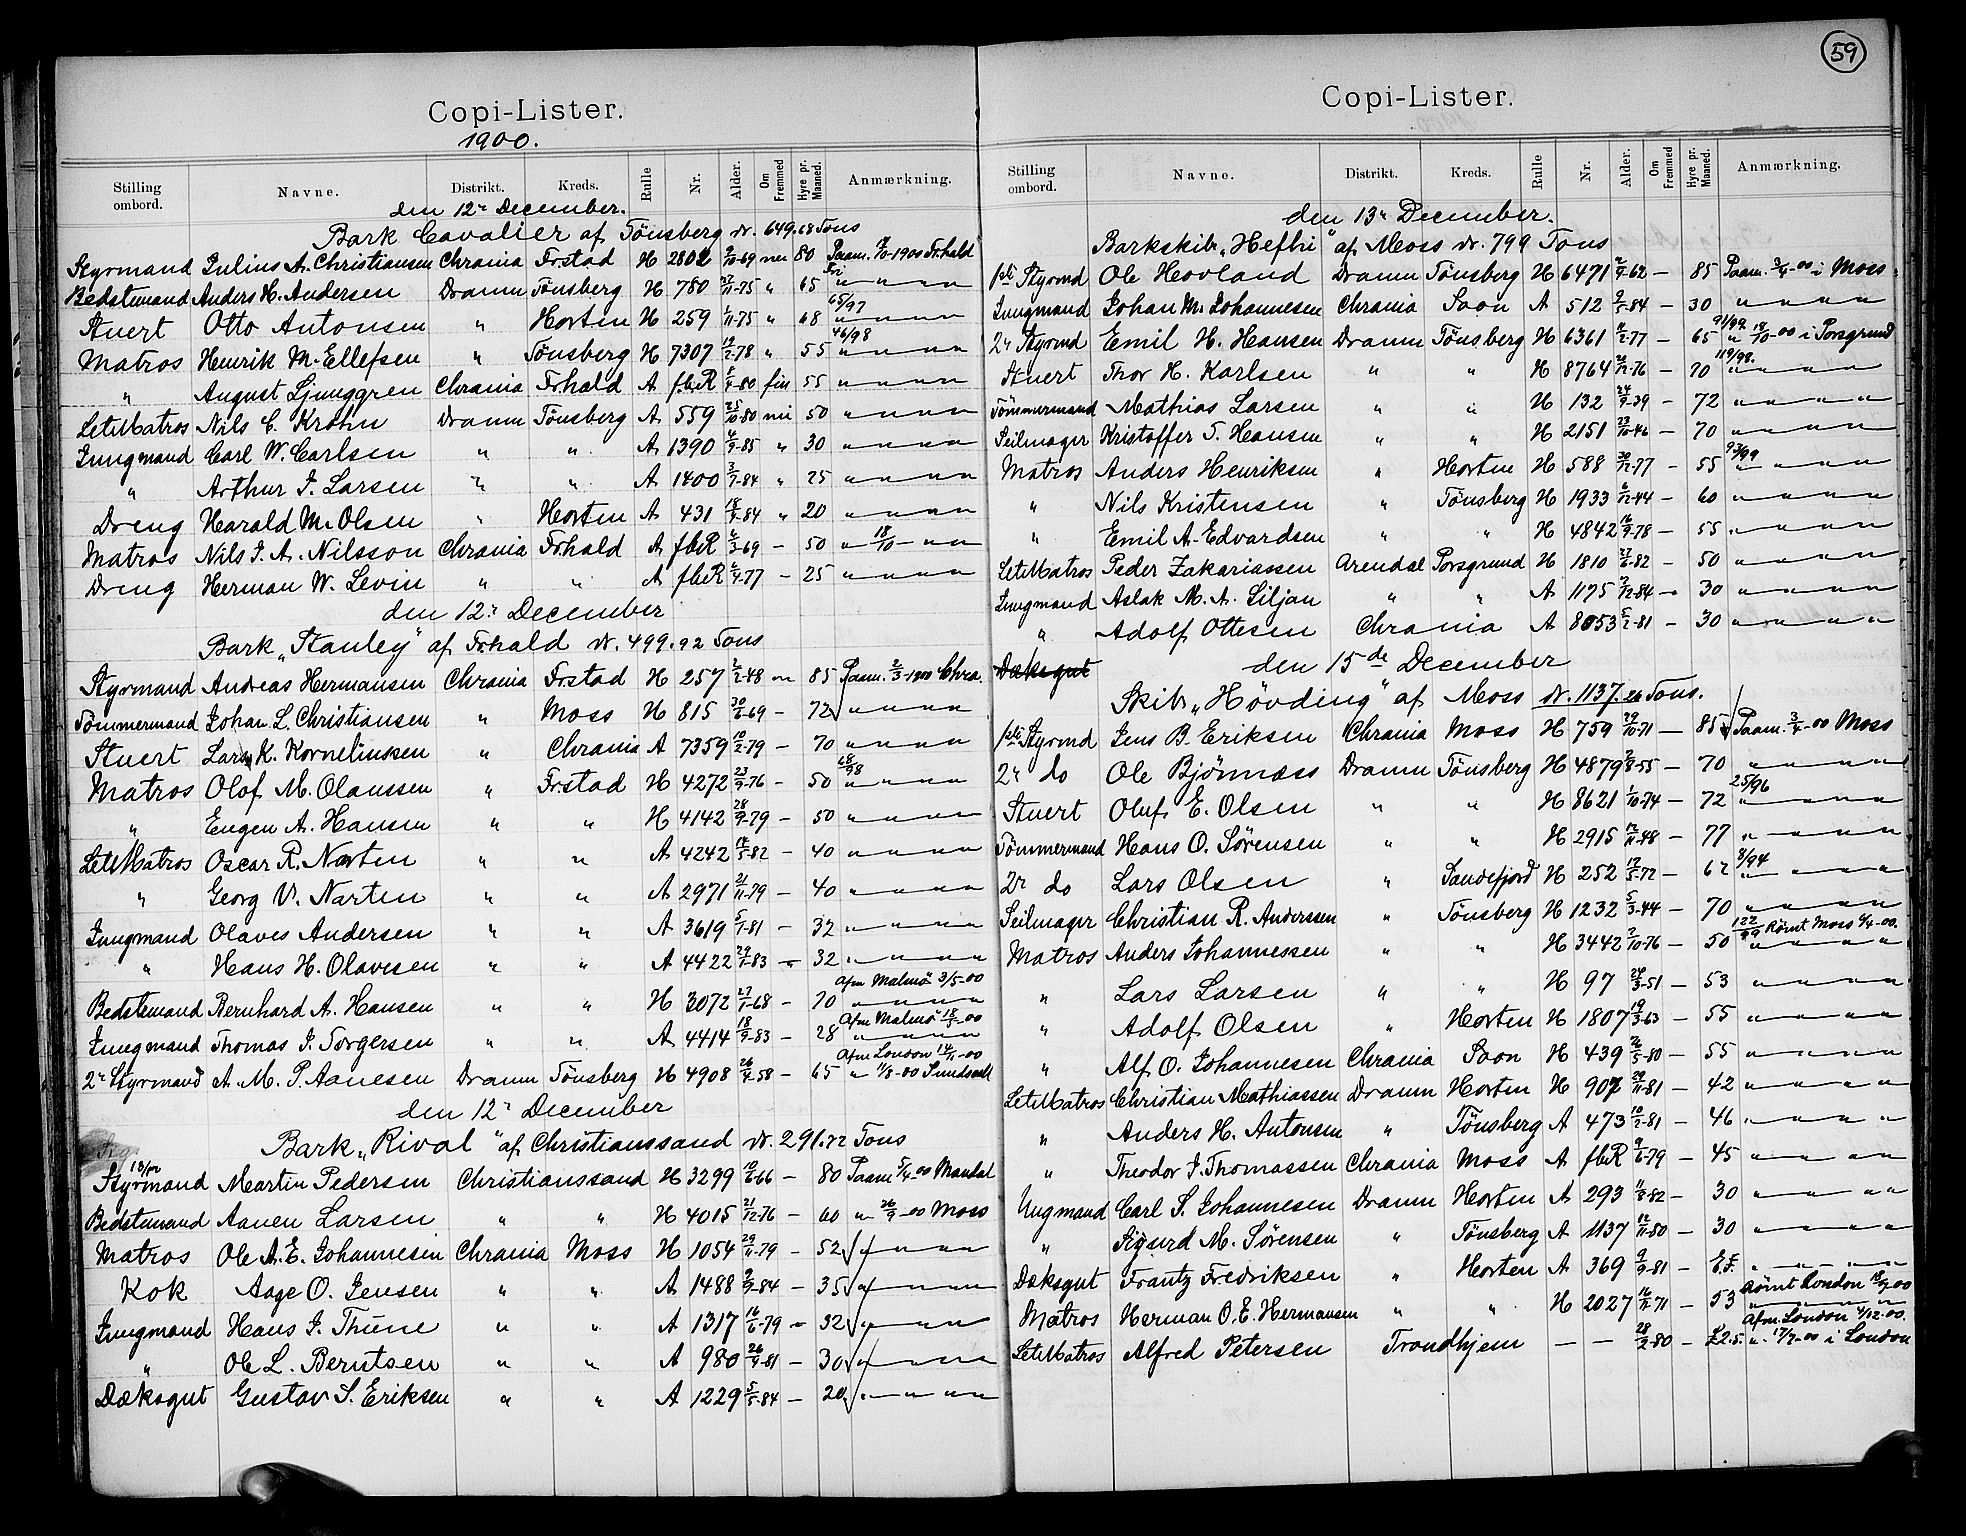 Copi-Lister.
1900.
Stilling ombord. Navne. Distrikt. Kreds. Rulle Nr. Alder. Om Fremmed Hyre pr. Maaned. Anmærkning.
den 12te December.
Bark Cavalier af Tönsberg dr. 649.68 Tons
Styrmand Julius A. Christiansen Chrania Frstad H 2802 80 Paam. 1900 Frhald
Bedstemand Anders H. Andersen Dramn Tönsberg H 780 -75 " 65 " " " "
Stuert Otto Antonsen " Horten H 259 1/11-75 " 68 65/97
Matros Henrik M. Ellefsen " Tönsberg H 7307 -78 " 55 46/98
" August Ljunggren Chrania Frhald A fbeR -80 fin 55 " " " "
LetMatros Nils C. Krohn Dramn Tönsberg A 559 25/10-80 50 " " " "
Jungmand Carl W. Carlsen " " A 1390 4/9-85 " 30 " " " "
" Arthur J. Larsen " " A 1400 3/7-84 " 25 " " " "
Dreng Harald M. Olsen " Horten A 431 18/9-84 " 20 " " " "
Matros Nils J. A. Nilsson Chrania Frhald A fbeR -69 — 50 " 18/10 " "
Dreng Herman W. Levin " " A fbeR -77 — 25 " " " "
den 12te December
Bark „Stanley" af Frhald dr. 499.92 Tons
Styrmand Andreas Hermansen Chrania Frstad H 257 2/2-48 — 85 Paam. 2/3-1900 Chra.
Tömmermand Johan L. Christiansen " Moss H 815 30/6-69 — 72 " " " "
Stuert Lars K. Kornelinsen " Chrania A 7359 10/2-79 — 70 " " " "
Matros Olof M. Olaussen " Frstad H 4272 23/9-76 — 50 68/98 " " " "
" Eugen A. Hansen " " H 4142 28/9-79 — 50 " " " "
LetMatros Oscar R. Narten " " A 4242 -82 — 40 " " " "
" Georg V. Narten " " A 2971 21/11-79 — 40 " " " "
Jungmand Olaves Andersen " " A 3619 5/1-81 — 32 " " " "
" Hans H. Olavesen " " A 4422 29/1-83 — 32 " " " "
Bedstemand Bernhard A. Hansen " " H 3072 27/1-68 — 70 Afm Malmö 3/5-00
Jungmand Thomas J. Torgersen " " A 4414 18/9-83 — 28 Afm Malmö 18/5-00
2n Styrmand A. M. P. Aanesen Dramn Tönsberg H 4908 26/4-58 — 65 Afm London 14/11-00 " 11/8-00 Sundsvall
den 12te December
Bark „Rival" af Christianssand dr. 291.72 Tons
Styrmand Martin Pedersen Christianssand H 3299 -66 — 80 Paam 5/4-00 Mandal
Bedstemand Aanen Larsen " " H 4015 21/12-76 — 60 " 26/9-00 Moss
Matros Ole A. E. Johannesen Chrania Moss H 1054 29/11-79 — 52 " " " "
Kok Aage O. Jensen " " A 1488 9/9-84 — 35 " " " "
Jungmand Hans J. Thune " " A 1317 16/6-79 — 32 " " " "
" Ole L. Berntsen " " A 980 26/9-81 — 30 " " " "
Dæksgut Gustav S. Eriksen " " A 1229 5/5-84 — 20 " " " "
59
Copi-Lister.
Stilling ombord. Navne. Distrikt. Kreds. Rulle Nr. Alder. Om Fremmed Hyre pr. Maaned. Anmærkning.
den 13te December.
Barkskib „Hefhi" af Moss dr. 799 Tons
1ste Styrmd Ole Hovland Dramn Tönsberg H 6471 -62 — 85 Paam. 3/4-00 i Moss
Jungmand Johan M. Johannesen Chrania Soon A 512 -84 — 30 " " " "
2n Styrmd Emil H. Hansen Dramn Tönsberg H 6361 -77 — 65 91/99 " 18/10-00 i Porsgrund
Stuert Thor H. Karlsen " " H 8764 -76 — 70 119/98
Tömmermand Mathias Larsen " " H 132 24/9-39 — 72 " " " "
Seilmager Kristoffer T. Hansen " " H 2151 23/10-46 — 70 " " " "
Matros Anders Henriksen " Horten H 588 -77 — 55 93/99
" Nils Kristensen " Tönsberg H 1933 -44 — 60 " " " "
" Emil A. Edvardsen " " H 4842 -78 — 55 " " " "
LetMatros Peder Zakariassen Arendal Porsgrund H 1810 27/6-82 — 50 " " " "
Jungmand Aslak M. A. Siljan " " A 1175 -84 — 30 " " " "
" Adolf Ottesen Chrania A 8053 5/2-81 — 30 " " " "
Dæksgut den 15de December
Skib „Hövding" af Moss dr. 1137.26 Tons.
1ste Styrmd Jens B. Eriksen Chrania Moss H 759 29/10-71 — 85 Paam. 3/4-00 Moss
2n do Ole Bjönnæss Dramn Tönsberg H 4879 -55 — 70 " " " "
Stuert Oluf E. Olsen " " H 8621 1/10-74 — 72 25/96
Tömmermand Hans O. Sørensen " " H 2915 -48 — 77 " " " "
2n do Lars Olsen " Sandefjord H 252 -72 — 62 8/94
Seilmager Christian R. Anderssen " Tönsberg H 1232 5/3-44 — 70 " " " "
Matros Anders Johannessen " " H 3442 -76 — 50 122/99 Rømt Moss 6/4-00.
" Lars Larsen " " H 97 -51 — 53 " " " "
" Adolf Olsen " Horten H 1807 19/3-63 — 55 " " " "
" Alf O. Johannesen Chrania Soon H 439 -80 — 55 " " " "
LetMatros Christian Mathiassen Dramn Horten H 907 29/11-81 — 42 " " " "
" Anders H. Antonsen " Tönsberg A 473 10/2-81 — 46 " " " "
" Theodor J. Thomassen Chrania Moss A fbeR 9/6-79 — 45 " " " "
Ungmand Carl S. Johannesen Dramn Horten A 293 -82 — 30 " " " "
" Sigurd M. Sørensen " Tönsberg A 1137 12/11-80 — 30 " " " "
Dæksgut Frantz Fredriksen " Horten A 369 9/9-81 — E.F. " " " "
Matros Herman O. E. Hermansen " " H 2027 16/11-71 — 53 Rømt London 00
LetMatros Alfred Petersen Trondhjem — — 28/2-80 — £2.5. Afm. London 4/12-00. " 17/7-00 i London